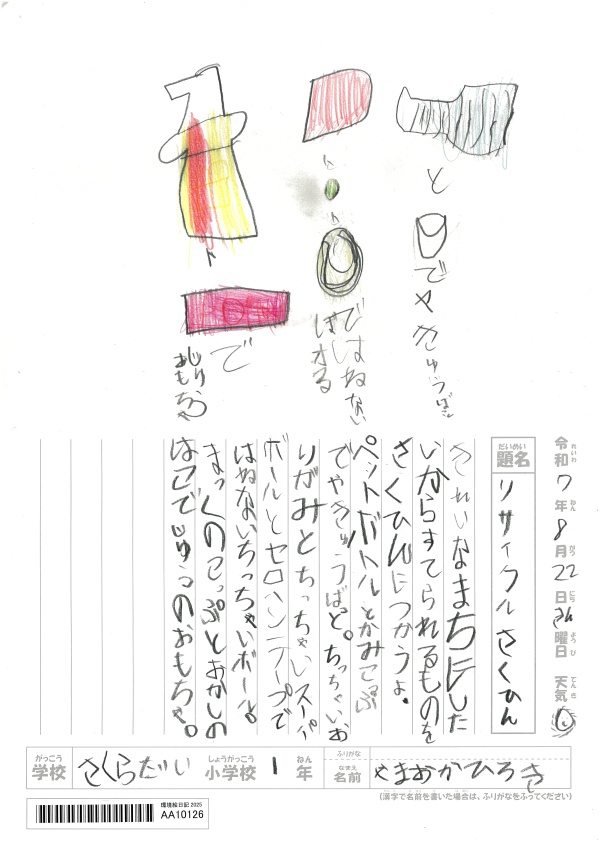 と
でやきゅうばっ
ではねない
ぼおる
で
じゅう
おもちゃ
令和7年8月22日きん曜日 天気
れいわ ねん がつ にち ようび てんき
だいめい
題名
リサイクルさくひん
きれいなまちにした
いからすてられるものを
さくひんにつかうよ。
ペットボトルとかみこっぷ
でやきゅうばっと。ちっちゃいお
りがみとちっちゃいスーパー
ボールとセロハンテープで
はねないちっちゃいボール。
まっくのこっぷとおかしの
はこでじゅうのおもちゃ。
がっこう
学校
さくらだい
しょうがっこう
小学校
1
ねん
年
ふりがな
なまえ
名前
やまおかひろき
(漢字で名前を書いた場合は、ふりがなをふってください)
環境絵日記 2025
AA10126